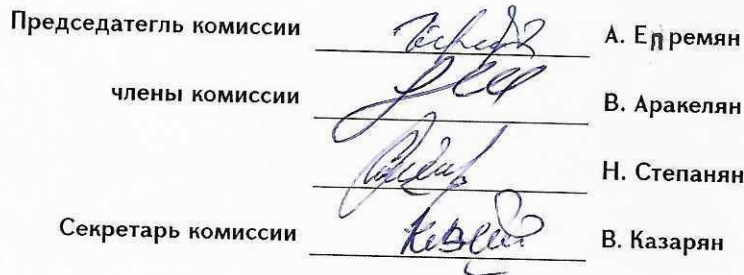 Председатегль комиссии А. Епремян
члены комиссии В. Аракелян
Н. Степанян
Секретарь комиссии В. Казарян